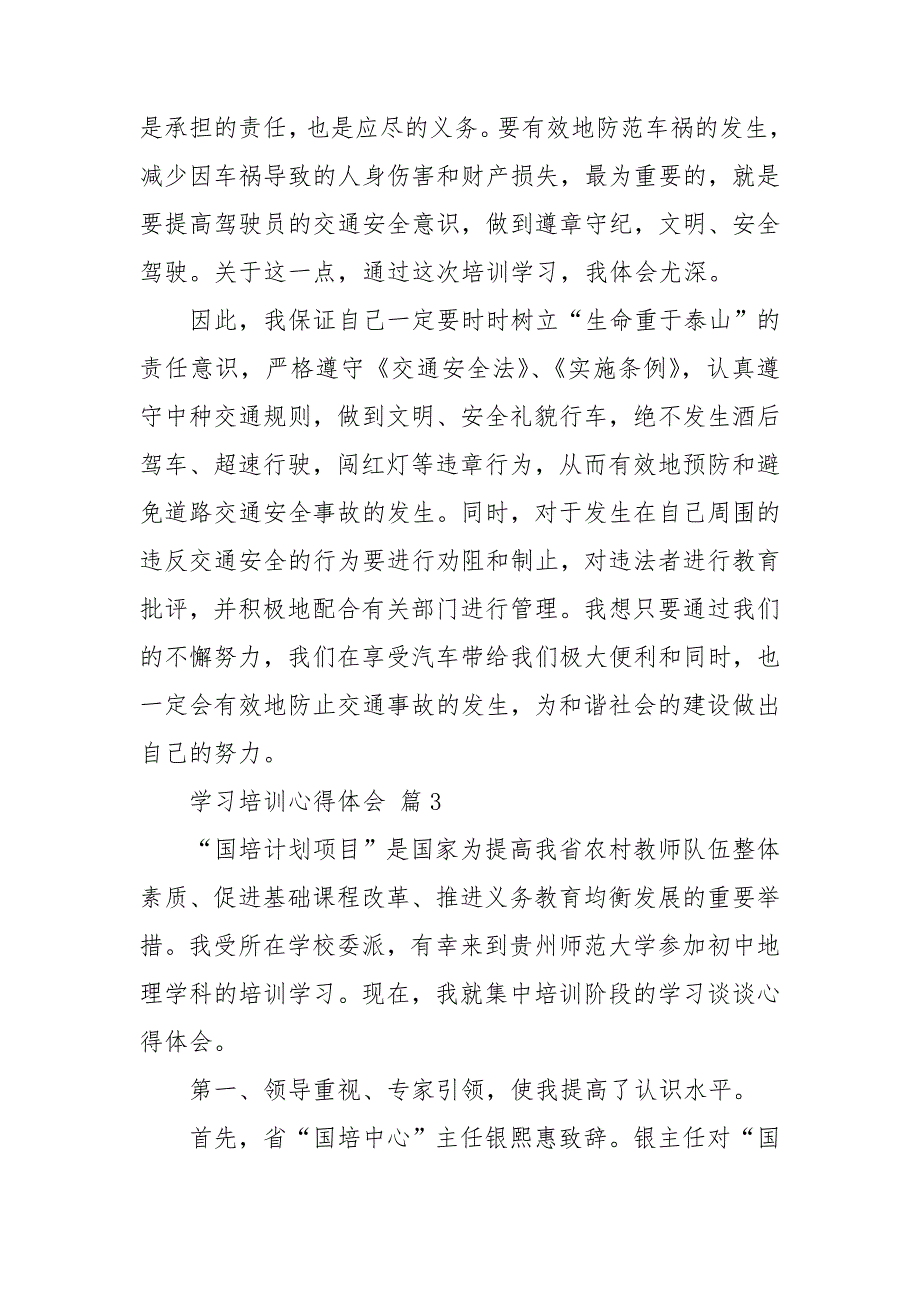 是承担的责任，也是应尽的义务。要有效地防范车祸的发生，
减少因车祸导致的人身伤害和财产损失，最为重要的，就是
要提高驾驶员的交通安全意识，做到遵章守纪，文明、安全
驾驶。关于这一点，通过这次培训学习，我体会尤深。
因此，我保证自己一定要时时树立“生命重于泰山”的
责任意识，严格遵守《交通安全法》、《实施条例》，认真遵
守中种交通规则，做到文明、安全礼貌行车，绝不发生酒后
驾车、超速行驶，闯红灯等违章行为，从而有效地预防和避
免道路交通安全事故的发生。同时，对于发生在自己周围的
违反交通安全的行为要进行劝阻和制止，对违法者进行教育
批评，并积极地配合有关部门进行管理。我想只要通过我们
的不懈努力，我们在享受汽车带给我们极大便利和同时，也
一定会有效地防止交通事故的发生，为和谐社会的建设做出
自己的努力。
学习培训心得体会 篇3
“国培计划项目”是国家为提高我省农村教师队伍整体
素质、促进基础课程改革、推进义务教育均衡发展的重要举
措。我受所在学校委派，有幸来到贵州师范大学参加初中地
理学科的培训学习。现在，我就集中培训阶段的学习谈谈心
得体会。
第一、领导重视、专家引领，使我提高了认识水平。
首先，省“国培中心”主任银熙惠致辞。银主任对“国